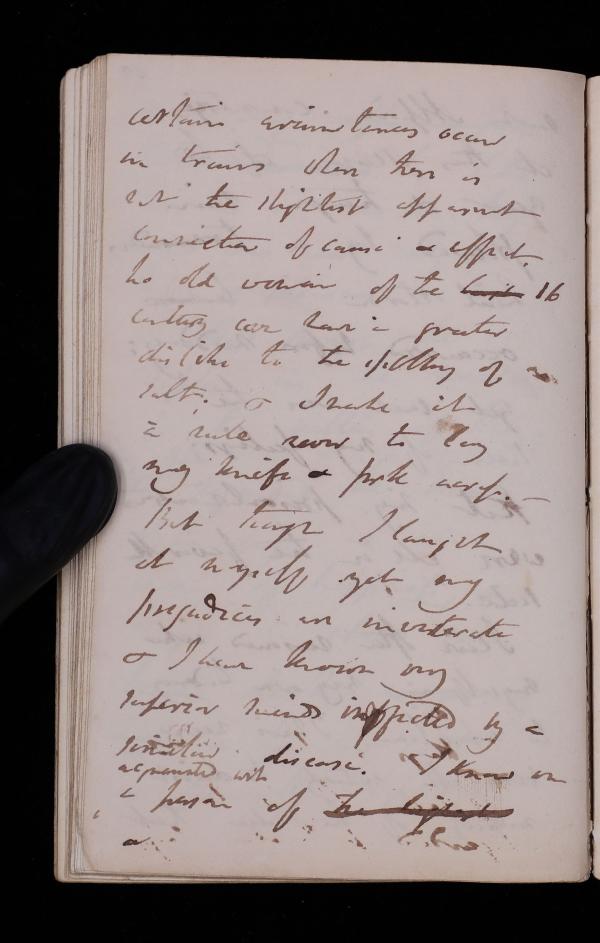 certain circumstances occur
in trains when there is
not the slightest apparent
connection of cause & effect.
No old woman of the 16
century can have a greater
dislike to the spilling of
salt. & I make it
a rule never to lay
my knife & fork across. —
But though I laugh
at myself yet my
prejudices are inveterate
& I have known many
superior minds infected by a
similar disease. I know
acquainted with
a person of the highest